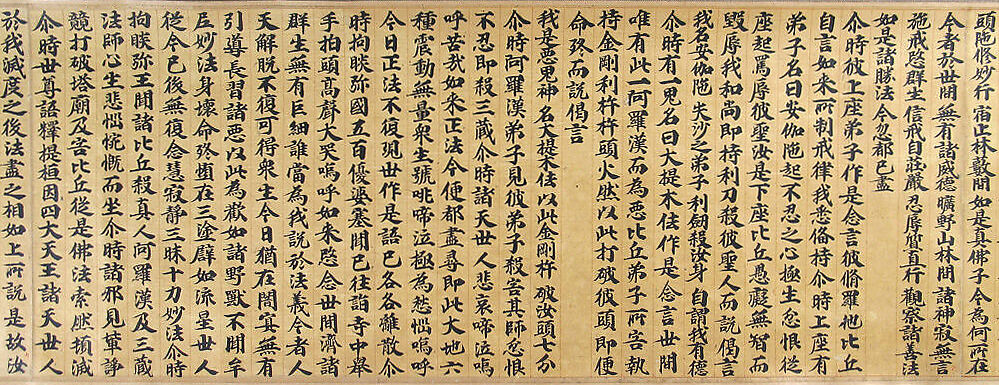 頭陁修妙行 宿止林藪間 如是真佛子 今為何所在
今者於世間 無有諸威德 曠野山林間 諸神寂無言
施戒愍群生 信戒自莊嚴 忍辱質直行 觀察諸善法
如是諸勝法 今忽都已盡
尒時彼上座弟子作是念言彼脩羅他比丘
自言如来所制戒律我悉俻持尒時上座有
弟子名曰安伽陁起不忍之心極生忿恨從
座起罵辱彼聖汝是下座比丘愚癡無智而
毀辱我和尚即持利刀殺彼聖人而說偈言
我名安伽陁 失沙之弟子 利劍殺汝身 自謂我有德
尒時有一鬼名曰大提木佉作是念言世間
唯有此一阿羅漢而為惡比丘弟子所害執
持金剛利杵杵頭火然以此打破彼頭即便
命終而說偈言
我是惡鬼神 名大提木佉 以此金剛杵 破汝頭七分
尒時阿羅漢弟子見彼弟子殺害其師忿恨
不忍即殺三藏尒時諸天世人悲哀啼泣嗚
呼苦哉如来正法今便都盡尋即此大地六
種震動無量衆生號咷啼泣極為愁惱嗚呼
今日正法不復現世作是語已各各離散尒
時拘睒弥國五百優婆塞聞已往詣寺中舉
手拍頭高聲大哭嗚呼如来愍念世間濟諸
群生無有巨細誰當為我說於法義今者人
天解脫不復可得衆生今日猶在闇冥無有
引導長習諸惡以此為歡如諸野獸不聞牟
尼妙法身壞命終墮在三塗譬如流星世人
從今已後無復念慧寂靜三昧十力妙法尒時
拘睒弥王聞諸比丘殺真人阿羅漢及三藏
法師心生悲惱惋慨而坐尒時諸邪見軍諍
競打破塔廟及害比丘從是佛法索然頓滅
尒時世尊語釋提桓因四大天王諸天世人
於我滅度之後法盡之相如上所說是故汝